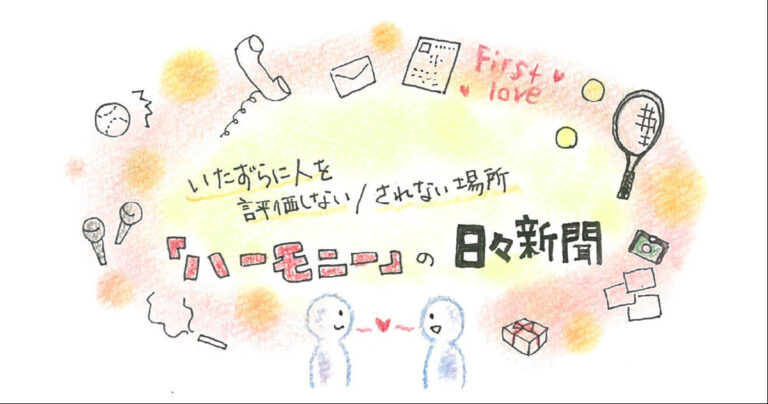 First
love
いたずらに人を
評価しない/されない場所
「ハーモニー」の日々新聞